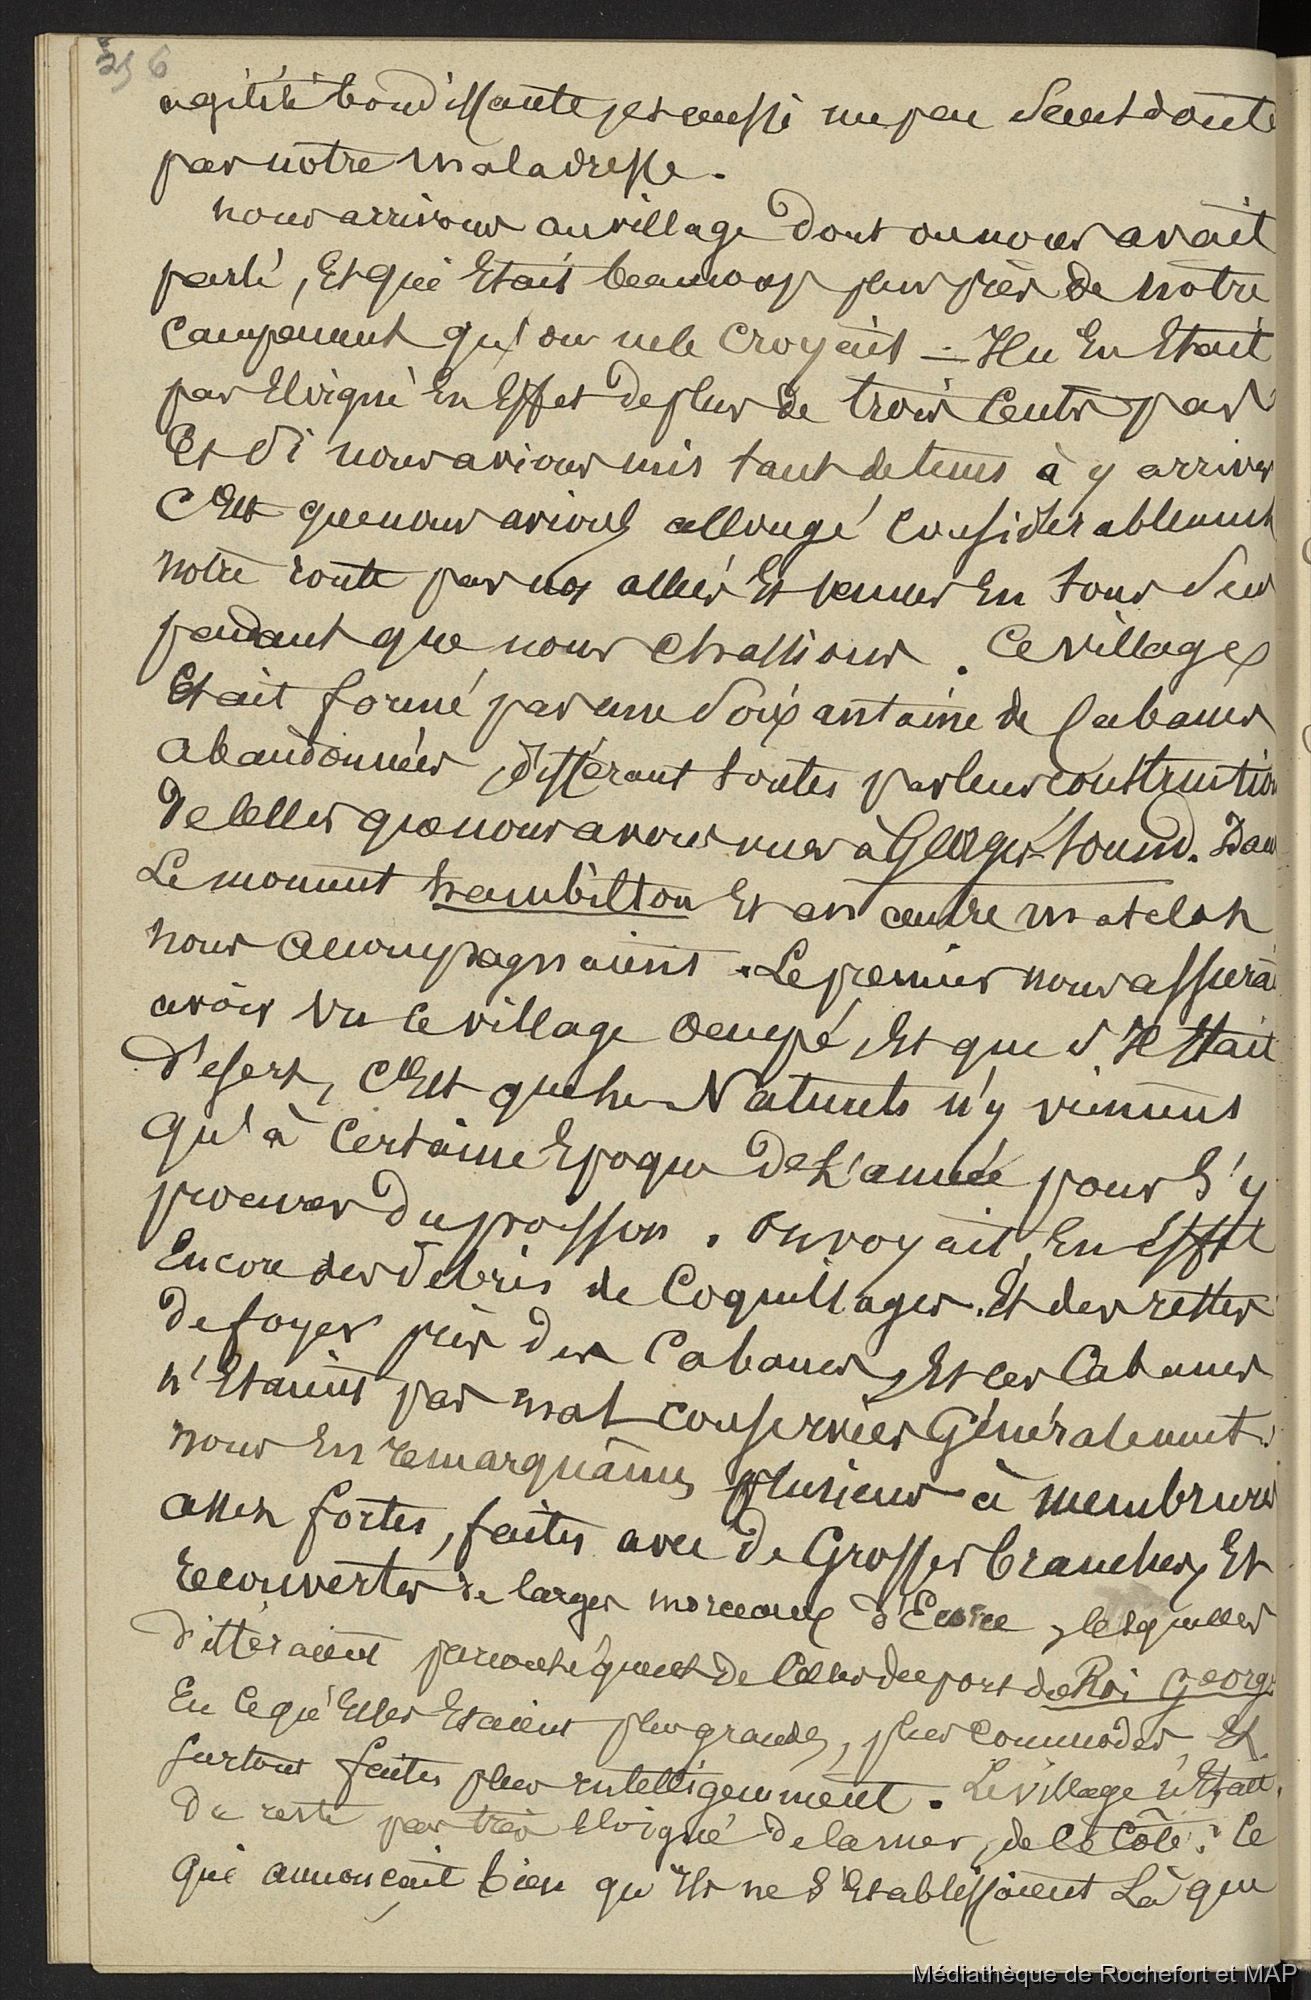 256
agilité bondissante, et aussi un peu sans doute
par notre maladresse.
nous arrivons au village dont on nous avait
parlé, Et qui Etait beaucoup plus près de notre
Campement qu'on ne le croyait — Il n'en Etait
pas Eloigné En Effet de plus de trois cents pas
Et si nous avions mis tant de tems à y arriver
C'Est que nous avions allongé Considérablement
notre route par nos allées Et venues En tous sens
pendant que nous chassions. Ce village
Etait formé par une soixantaine de Cabanes
abandonnées, différant toutes par leur construction
de celles que nous avons vues à Georges-sound. Dans
Le moment hambilton Et un autre matelot
nous accompagnaient. Le premier nous assura
avoir vu ce village occupé, Et que s'Il Etait
désert, C'Est que les Naturels n'y viennent
qu'à Certaine Epoque de L'année pour s'y
procurer du poisson. on voyait, En Effet
Encore des débris de Coquillages. Et des restes
de foyer près des Cabanes, Et ces Cabanes
n'Etaient pas mal conservées Généralement.
nous En remarquâmes plusieurs à membrures
assez fortes, faites avec de Grosses branches, Et
recouvertes de larges morceaux d'Ecorce, lesquelles
différaient par conséquent de Celles du port du Roi George
En Ce qu'Elles Etaient plus grandes, plus commodes, Et
surtout faites plus intelligemment. Le village n'Etait
du reste pas très Eloigné de la mer, de ce Côté; Ce
qui annonçait bien qu'Ils ne s'Etablissaient Là que
Médiathèque de Rochefort et MAP